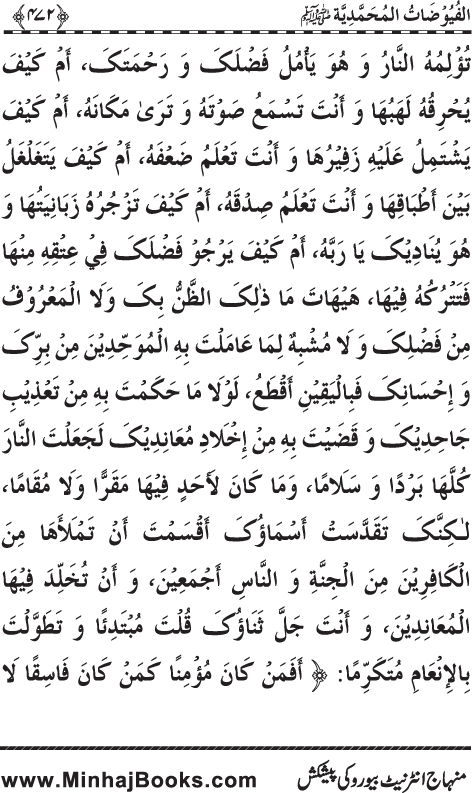 الفُیُوْضَاتُ المُحَمَّدِیَّة ﷺ ﴿۴۷۲﴾
تُؤْلِمُهُ النَّارُ وَ هُوَ يَأْمُلُ فَضْلَکَ وَ رَحْمَتَکَ، أَمْ کَيْفَ
يُحْرِقُهُ لَهَبُهَا وَ أَنْتَ تَسْمَعُ صَوْتَهُ وَ تَرَیٰ مَکَانَهُ، أَمْ کَيْفَ
يَشْتَمِلُ عَلَيْهِ زَفِيْرُهَا وَ أَنْتَ تَعْلَمُ ضَعْفَهُ، أَمْ کَيْفَ يَتَغَلْغَلُ
بَيْنَ أَطْبَاقِهَا وَ أَنْتَ تَعْلَمُ صِدْقَهُ، أَمْ کَيْفَ تَزْجُرُهُ زَبَانِيَتُهَا وَ
هُوَ يُنَادِيْکَ يَا رَبَّهُ، أَمْ کَيْفَ يَرْجُوْ فَضْلَکَ فِيْ عِتْقِهِ مِنْهَا
فَتَتْرُکُهُ فِيْهَا، هَيْهَاتَ مَا ذٰلِکَ الظَّنُّ بِکَ وَلَا الْمَعْرُوْفُ
مِنْ فَضْلِکَ وَ لَا مُشْبِهٌ لِمَا عَامَلْتَ بِهِ الْمُوَحِّدِيْنَ مِنْ بِرِّکَ
وَ إِحْسَانِکَ فَبِالْيَقِيْنِ أَقْطَعُ، لَوْلَا مَا حَکَمْتَ بِهِ مِنْ تَعْذِيْبِ
جَاحِدِيْکَ وَ قَضَيْتَ بِهِ مِنْ إِخْلَادِ مُعَانِدِيْکَ لَجَعَلْتَ النَّارَ
کُلَّهَا بَرْدًا وَ سَلَامًا، وَمَا کَانَ لِأَحَدٍ فِيْهَا مَقَرًّا وَلَا مُقَامًا،
لٰکِنَّکَ تَقَدَّسَتْ أَسْمَاؤُکَ أَقْسَمْتَ أَنْ تَمْلَأَهَا مِنَ
الْکَافِرِيْنَ مِنَ الْجِنَّةِ وَ النَّاسِ أَجْمَعِيْنَ، وَ أَنْ تُخَلِّدَ فِيْهَا
الْمُعَانِدِيْنَ، وَ أَنْتَ جَلَّ ثَنَاؤُکَ قُلْتَ مُبْتَدِئًا وَ تَطَوَّلْتَ
بِالإِنْعَامِ مُتَکَرِّمًا: ﴿ أَفَمَنْ کَانَ مُؤْمِنًا کَمَنْ کَانَ فَاسِقًا لَا
منہاج انٹرنیٹ بیورو کی پیشکش www.MinhajBooks.com